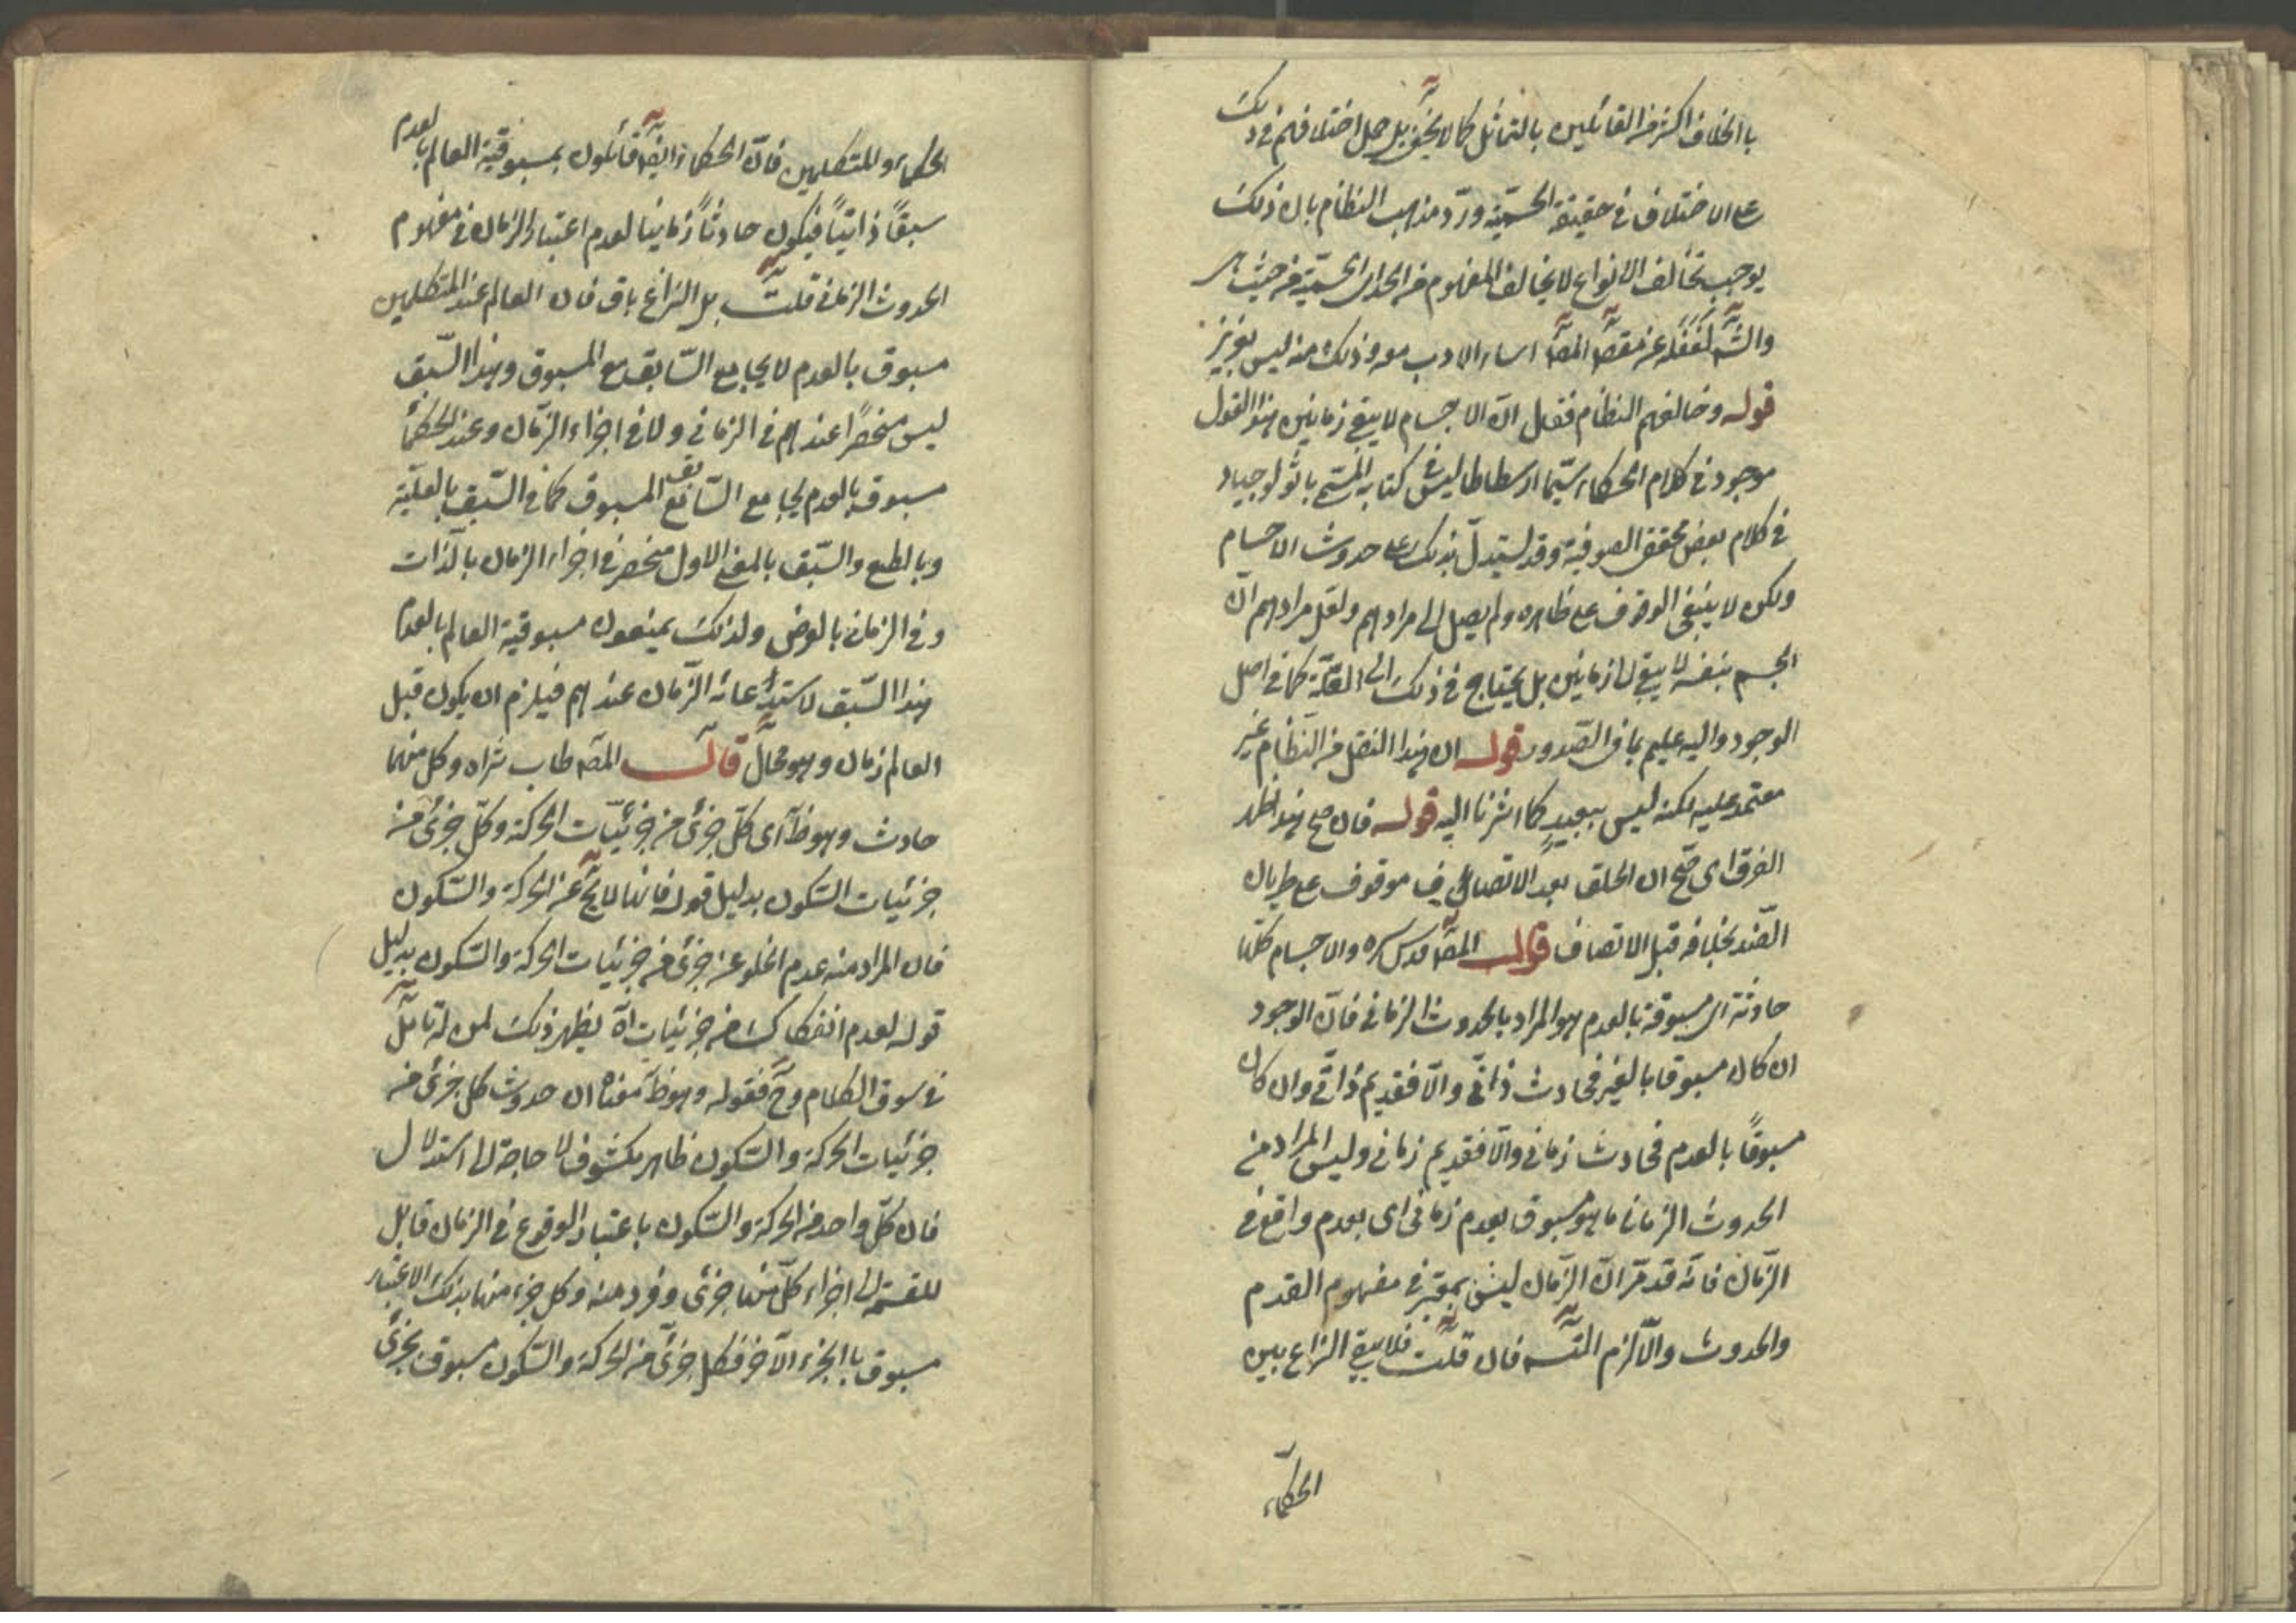 باالخلاف اكثر من القائلين بالتماثل كما لا يخفى بل حمل اختلافهم فى ذلك
على الاختلاف فى حقيقة الجسمية وردّ مذهب النظام بان ذلك
يوجب تخالف الانواع لا تخالف المفهوم من الحد اى الجسمية من حيث هى
والشّه لغفله عن مقصّ المصّ اساء الادب معه وذلك منه ليس بعزيز
قوله وخالفهم النظام فقال انّ الاجسام لا يبقى زمانين هذا القول
موجود فى كلام الحكماء سيّما ارسطاطاليس فى كتابه المسمّى باثولوجيا و
فى كلام بعض محققى الصوفية وقد يستدلّ بذلك على حدوث الاجسام
ولكن لا ينبغى الوقوف على ظاهره ولم يصل الى مرادهم ولعل مرادهم انّ
الجسم بنفسه لا يبقى زمانين بل يحتاج فى ذلك الى العلّة كما فى اصل
الوجود واليه عليم بما فى الصّدور قوله ان هذا النقل من النّظام غير
معتمد عليه لكنه ليس ببعيدٍ كما اشرنا اليه قوله فان صح هذا ظهر
الفرق اى صحّ ان الخلق بعد الاتصاف موقوف على طريان
الضّد بخلافه قبل الاتصاف قال المصّ قدس سره والاجسام كلّها
حادثة اى مسبوقة بالعدم هو المراد بالحدوث الزمانى فانّ الوجود
ان كان مسبوقا بالغير فحادث ذاتىّ والّا فقديم ذاتىّ وان كان
مسبوقاً بالعدم فحادث زمانى والّا فقديم زمانى وليس المراد من
الحدوث الزمانى ما هو مسبوق بعدم زمانى اى بعدم واقع فى
الزّمان فانّه قد مّر انّ الزّمان ليس بمعتبر فى مفهوم القدم
والحدوث والّا لزم التّسه فان قلت فلا يبقى النزاع بين
الحكماء
الحكماء والمتكلمين فانّ الحكماء ايضّا قائلون بمسبوقية العالم بالعدم
سبقاً ذاتيّاً فيكون حادثاً زمانيا لعدم اعتبار الزمان فى مفهوم
الحدوث الزمانى قلت بل النزاع باق فان العالم عند المتكلمين
مسبوق بالعدم لا يجامع السّابق مع المسبوق وهذا السّبق
ليس منحصراً عندهم فى الزمانى ولا فى اجزاء الزّمان وعند الحكماء
مسبوق بالعدم يجامع السّابق مع المسبوق كما فى السّبق بالعلّية
وبالطبع والسّبق بالمعنى الاول منحصر فى اجزاء الزمان بالذّات
وفى الزمانى بالعرض ولذلك يمنعون مسبوقية العالم بالعدم
هذا السّبق لاستدعائه الزّمان عندهم فيلزم ان يكون قبل
العالم زمان وهو محال قال المصّ طاب ثراه وكل منهما
حادث وهو ظّ اى كلّ جزئى من جزئيّات الحركة وكلّ جزئى من
جزئيات السّكون بدليل قوله فانها لا يخّ عن الحركة والسّكون
فان المراد منه عدم الخلو عن جزئى من جزئيات الحركة والسّكون بدليل
قوله لعدم انفكاك من جزئيات اه يظهر ذلك لمن له تامّل
فى سوق الكلام وحّ فقوله وهو ظّ معناه ان حدوث كل جزئى من
جزئيات الحركة والسّكون ظاهر مكشوف لا حاجة الى استدلال
فان كلّ واحد من الحركة والسّكون باعتبار الوقوع فى الزمان قابل
للقسمة الى اجزاء كلّ منها جزئى وفرد منه وكل جزء منها بذلك الاعتبار
مسبوق باالجزء الآخر فكل جزئىّ من الحركة والسّكون مسبوق بجزئى